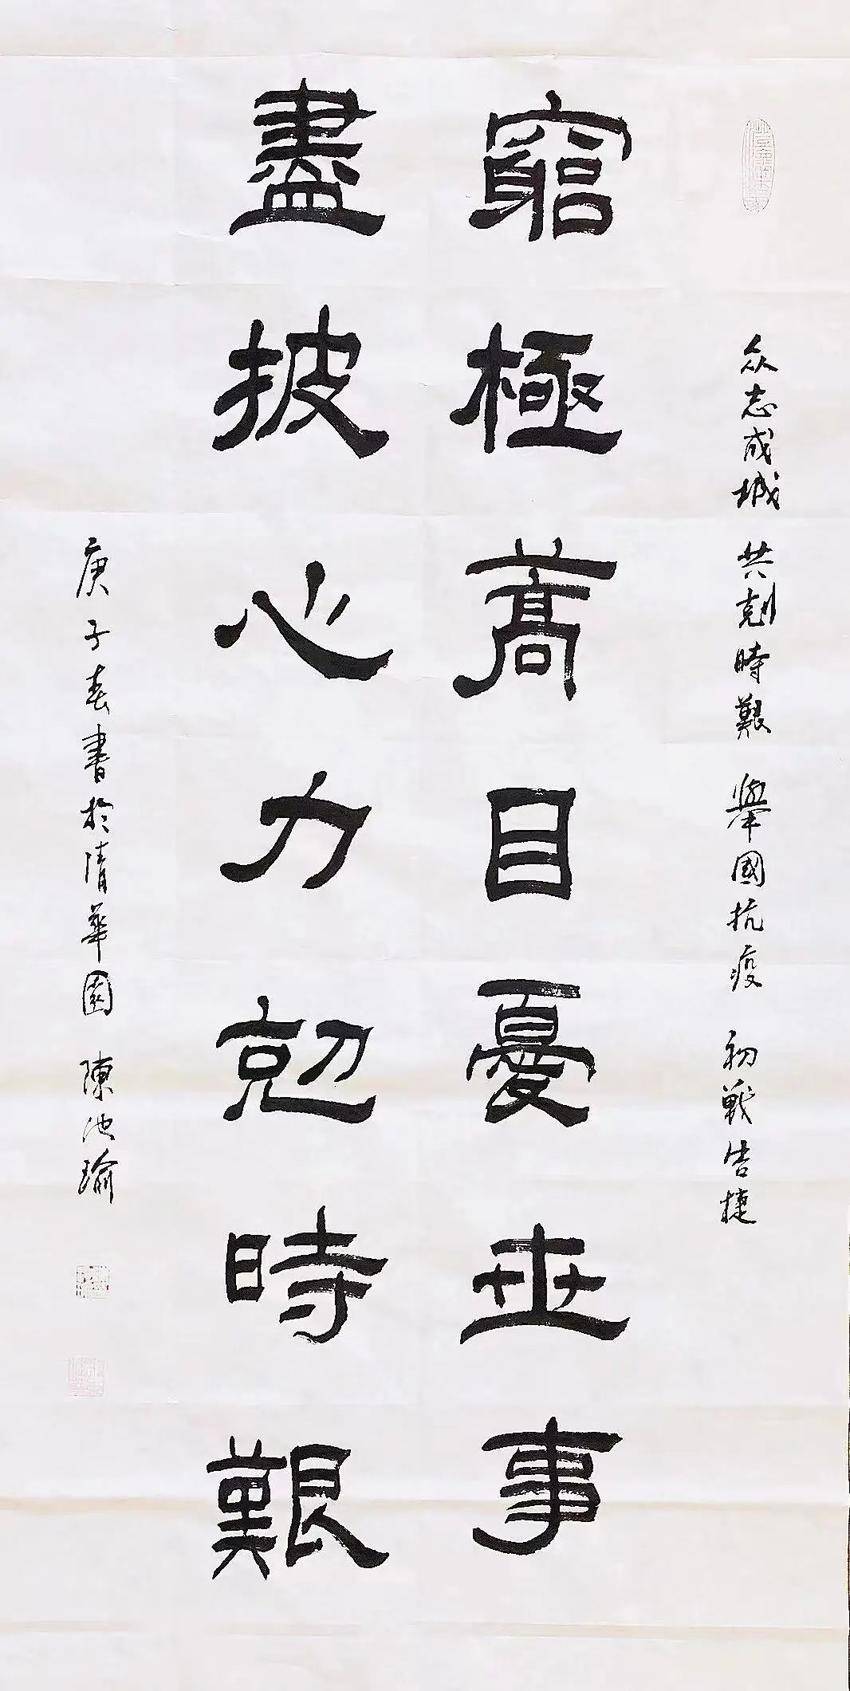 众志成城 共剋時艱 舉國抗疫 初戰告捷
窮極蒿目憂世事
盡披心力勊時艱
庚子春書於清華園 陳池瑜